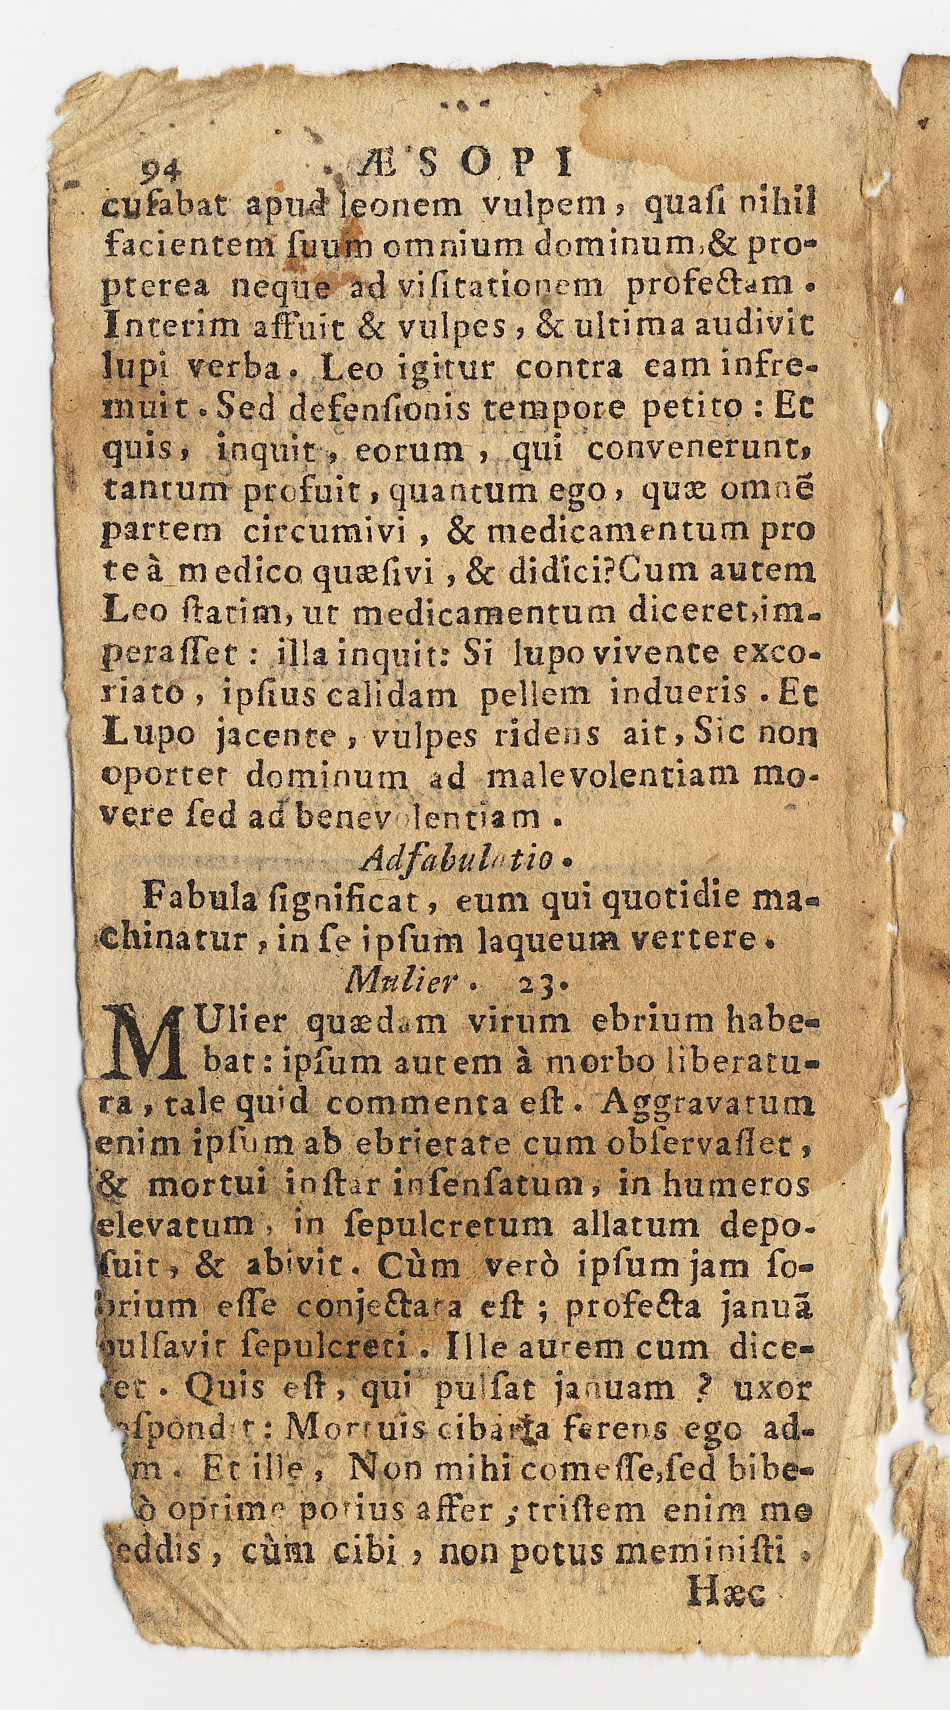 94 ÆSOPI
cuſabat apud leonem vulpem, quaſi nihil
facientem ſuum omnium dominum, & pro-
pterea neque ad viſitationem profectam.
Interim affuit & vulpes, & ultima audivit
lupi verba. Leo igitur contra eam infre-
muit. Sed defenſionis tempore petito: Et
quis, inquit, eorum, qui convenerunt,
tantum profuit, quantum ego, quæ omnẽ
partem circumivi, & medicamentum pro
te à medico quæſivi, & didici? Cum autem
Leo ſtatim, ut medicamentum diceret, im-
peraſſet: illa inquit: Si lupo vivente exco-
riato, ipſius calidam pellem indueris. Et
Lupo jacente, vulpes ridens ait, Sic non
oportet dominum ad malevolentiam mo-
vere ſed ad benevolentiam.
Adfabulatio.
Fabula ſignificat, eum qui quotidie ma-
chinatur, in ſe ipſum laqueum vertere.
Mulier. 23.
MUlier quædam virum ebrium habe-
bat: ipſum autem à morbo liberatu-
ra, tale quid commenta eſt. Aggravatum
enim ipſum ab ebrietate cum obſervaſſet,
& mortui inſtar inſenſatum, in humeros
elevatum, in ſepulcretum allatum depo-
ſuit, & abivit. Cùm verò ipſum jam ſo-
brium eſſe conjectata eſt; profecta januã
pulſavit ſepulcreti. Ille autem cum dice-
ret. Quis eſt, qui pulſat januam? uxor
eſpondit: Mortuis cibaria ferens ego ad-
m. Et ille, Non mihi comeſſe, ſed bibe-
ò optime potius affer; triſtem enim me
eddis, cùm cibi, non potus meminiſti.
Hæc